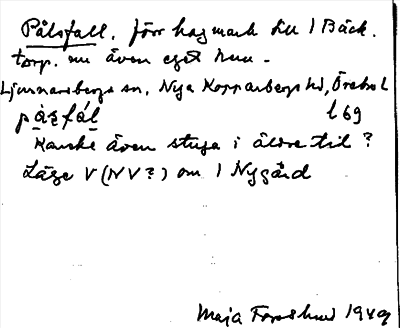 Pålsfall, förr hagmark till 1 Bäck.
torp. nu även eget hem -
Ljusnarsbergs sn, Nya Kopparbergs hd, Örebro L
pàʒfál l69
Kanske även stuga i äldre tid?
Läge V (NV?) om 1 Nygård
Maja 1949